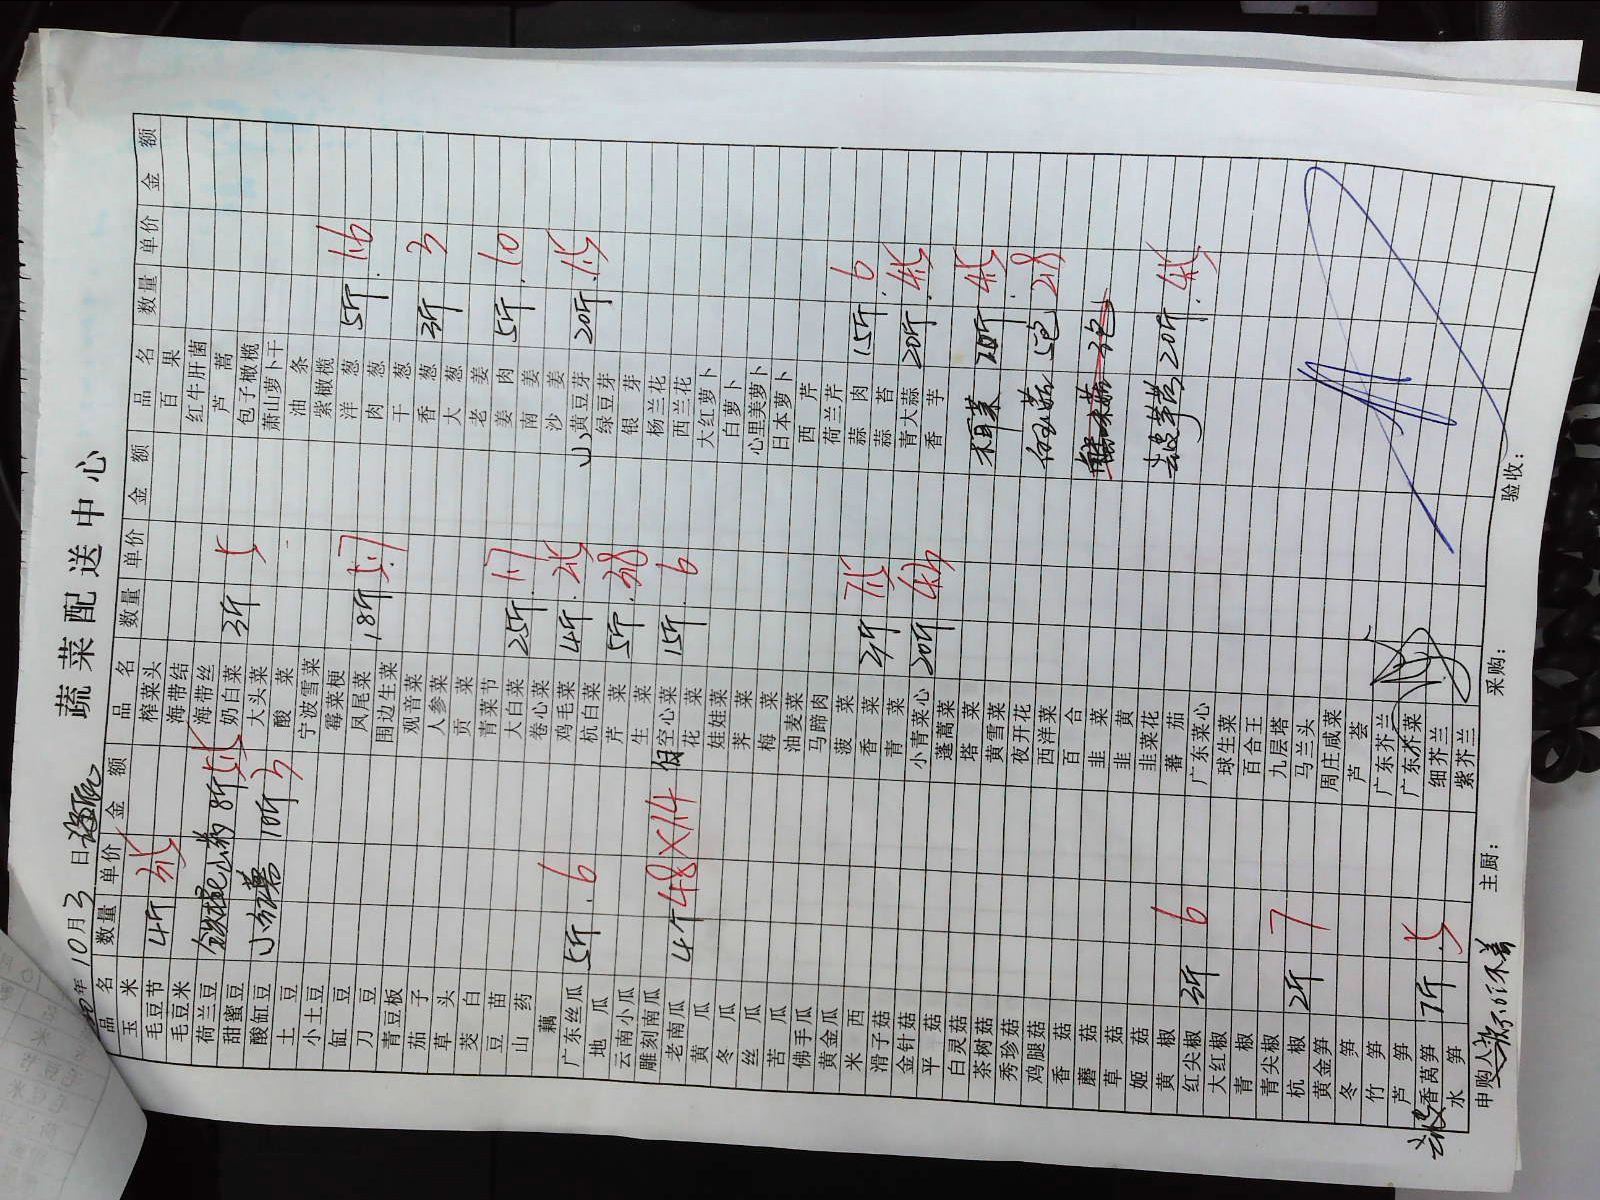 蔬菜配送中心
年10月3日
品名 数量 单价 金额 品名 数量 单价 金额 品名 数量 单价 金额
玉米 榨菜头 百果
毛豆节 4斤 海带结 红牛肝菌
毛豆米 海带丝 芦蒿
荷兰豆 8斤 奶白菜 3斤 5 包子橄榄
甜蜜豆 大头菜 萧山萝卜干
酸豇豆 10斤 酸菜 油条
土豆 宁波雪菜 紫橄榄
小土豆 霉菜梗 洋葱 5斤 1.6
豇豆 凤尾菜 18斤 肉葱
刀豆 围边生菜 干葱
青豆板 观音菜 香葱 3斤 3
茄子 人参菜 大葱
草头 贡菜 老姜
茭白 青菜节 姜肉 5斤 10
豆苗 大白菜 25斤 1.7 南姜
山药 卷心菜 沙姜
藕 鸡毛菜 4斤 黄豆芽 20斤
广东丝瓜 5斤 6 杭白菜 绿豆芽
地瓜 芹菜 5斤 3.8 银芽
云南小瓜 生菜 杨兰花
雕刻南瓜 空心菜 15斤 6 西兰花
老南瓜 4个 48×14 花菜 大红萝卜
黄瓜 娃娃菜 白萝卜
冬瓜 荠菜 心里美萝卜
丝瓜 梅菜 日本萝卜
苦瓜 油麦菜 西芹
佛手瓜 马蹄肉 荷兰芹
黄金瓜 菠菜 蒜肉 15斤 6
米西 香菜 2斤 蒜苔
滑子菇 青菜 青大蒜 20斤
金针菇 小青菜心 20斤 香芋
平菇 蓬蒿菜
白灵菇 塔菜
茶树菇 黄雪菜
秀珍菇 夜开花 5包 28
鸡腿菇 西洋菜
香菇 百合
蘑菇 韭菜
草菇 韭黄
姬菇 韭菜花 20斤
黄椒 蕃茄
红尖椒 3斤 6 广东菜心
大红椒 球生菜
青椒 百合王
青尖椒 九层塔
杭椒 2斤 7 马兰头
黄金笋 周庄咸菜
冬笋 芦荟
竹笋 广东芥兰
芦笋 广东芥菜
香莴笋 7斤 5 细芥兰
水笋 紫芥兰
申购人: 主厨: 采购: 验收: